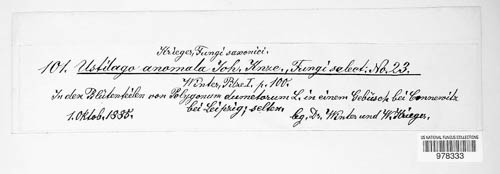 Krieger, Fungi saxonici.
101. Ustilago anomala Joh. Knze., Fungi select. No. 23.
Winter, Pilze I. p. 100.
In den Blütenteilen von Polygonum dumetorum L. in einem Gebüsch bei Connewitz
bei Leipzig, selten.
1. Oktob. 1885. leg. Dr. Winter und W. Krieger.
US NATIONAL FUNGUS COLLECTIONS
978333